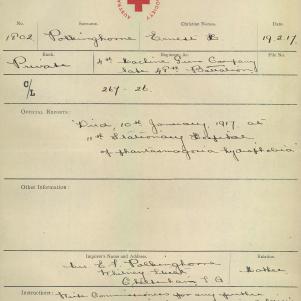 No.
Surname.
Christian Names.
1802 Polkinghorne Ernest 19.2.17.
Rank.
Regiment &c.
File No.
Private 4th Machine Gun Company
late 48th Battalion
C/L 267-26.
OFFICIAL REPORTS:
"Died, 10th January, 1917 at
11th Stationary Hospital
of
Other Information:
Inquirer's Name and Address.
Relation.
Mrs E. Polkinghorne
Whitney Street Mother
Cheltenham, S.A
Instructions:
Write Commissioners for any further